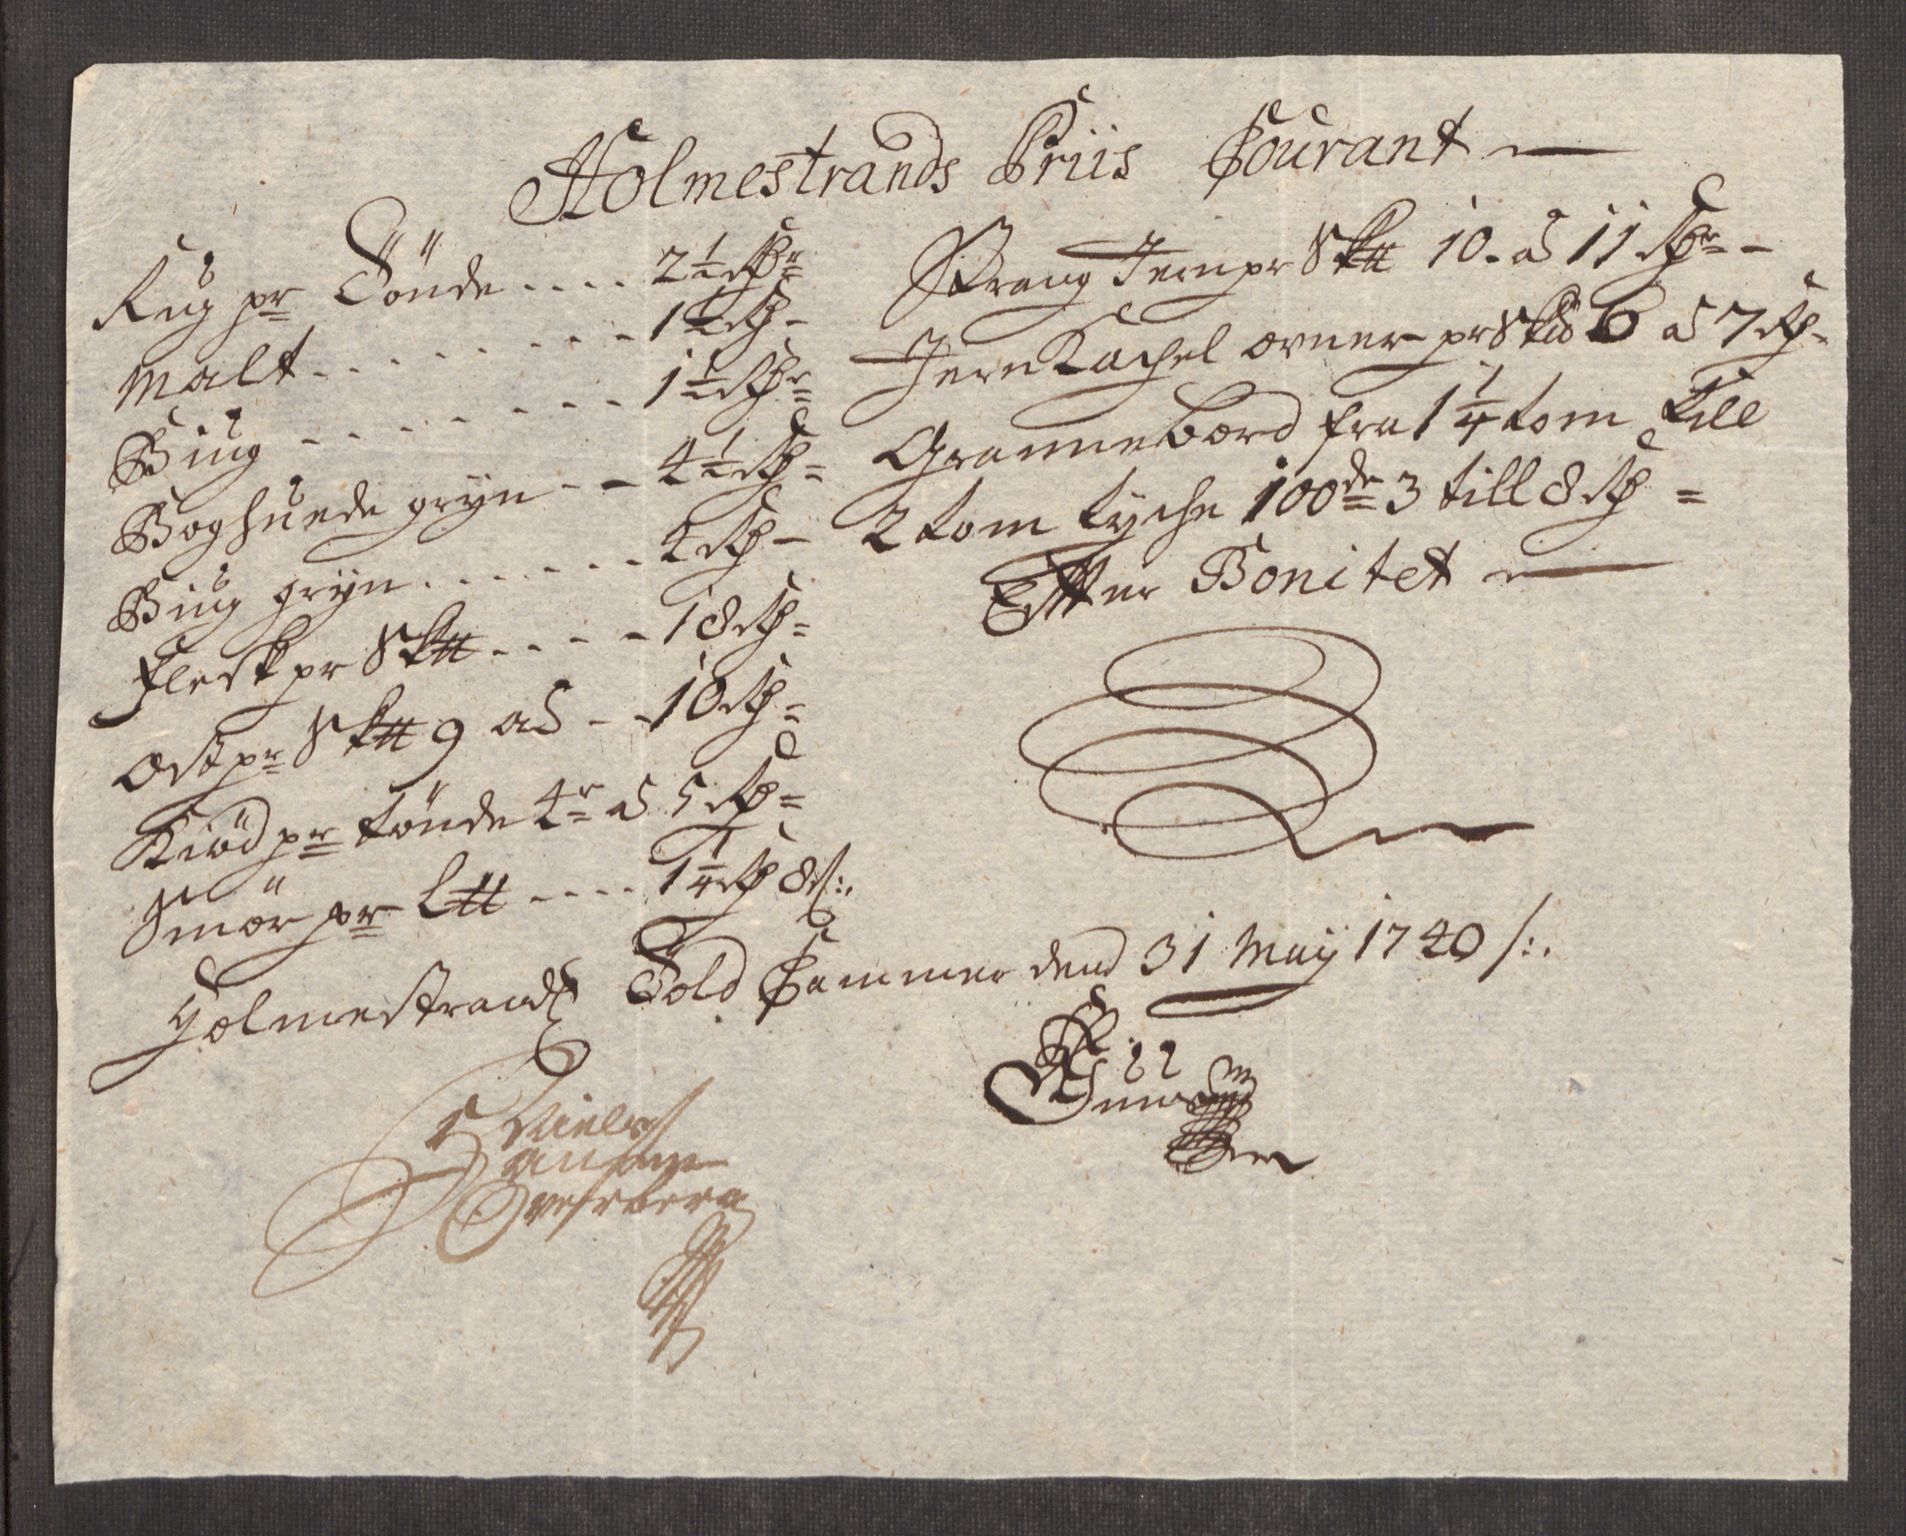 Holmestrands Priis Courant
Rug pr Tönde .... 2½ Rdr
Malt ........ 1½ Rd
Biug ........ 1½ Rdr
Boghuede gryn -- 4½ Rd
Biug gryn ...... 4 Rd
Flesk pr Sk℔ .... 18 Rd
Ost pr Sk℔ 9 a .. 10 Rd
Kiöd pr tönde 4r a 5 Rd
Smör pr L℔ .... 1¼ Rd 8 s:
Stang Jern pr Sk℔ 10. a 11 Rdr
Jern Kachel ovner pr Sk℔ 6 a 7 Rd
Grannebord fra 1¼ tom till
2 tom tyche 100de 3 till 8 Rd
Efter Bonitet
Holmestrands Told Cammer dend 31 May 1740
Niels